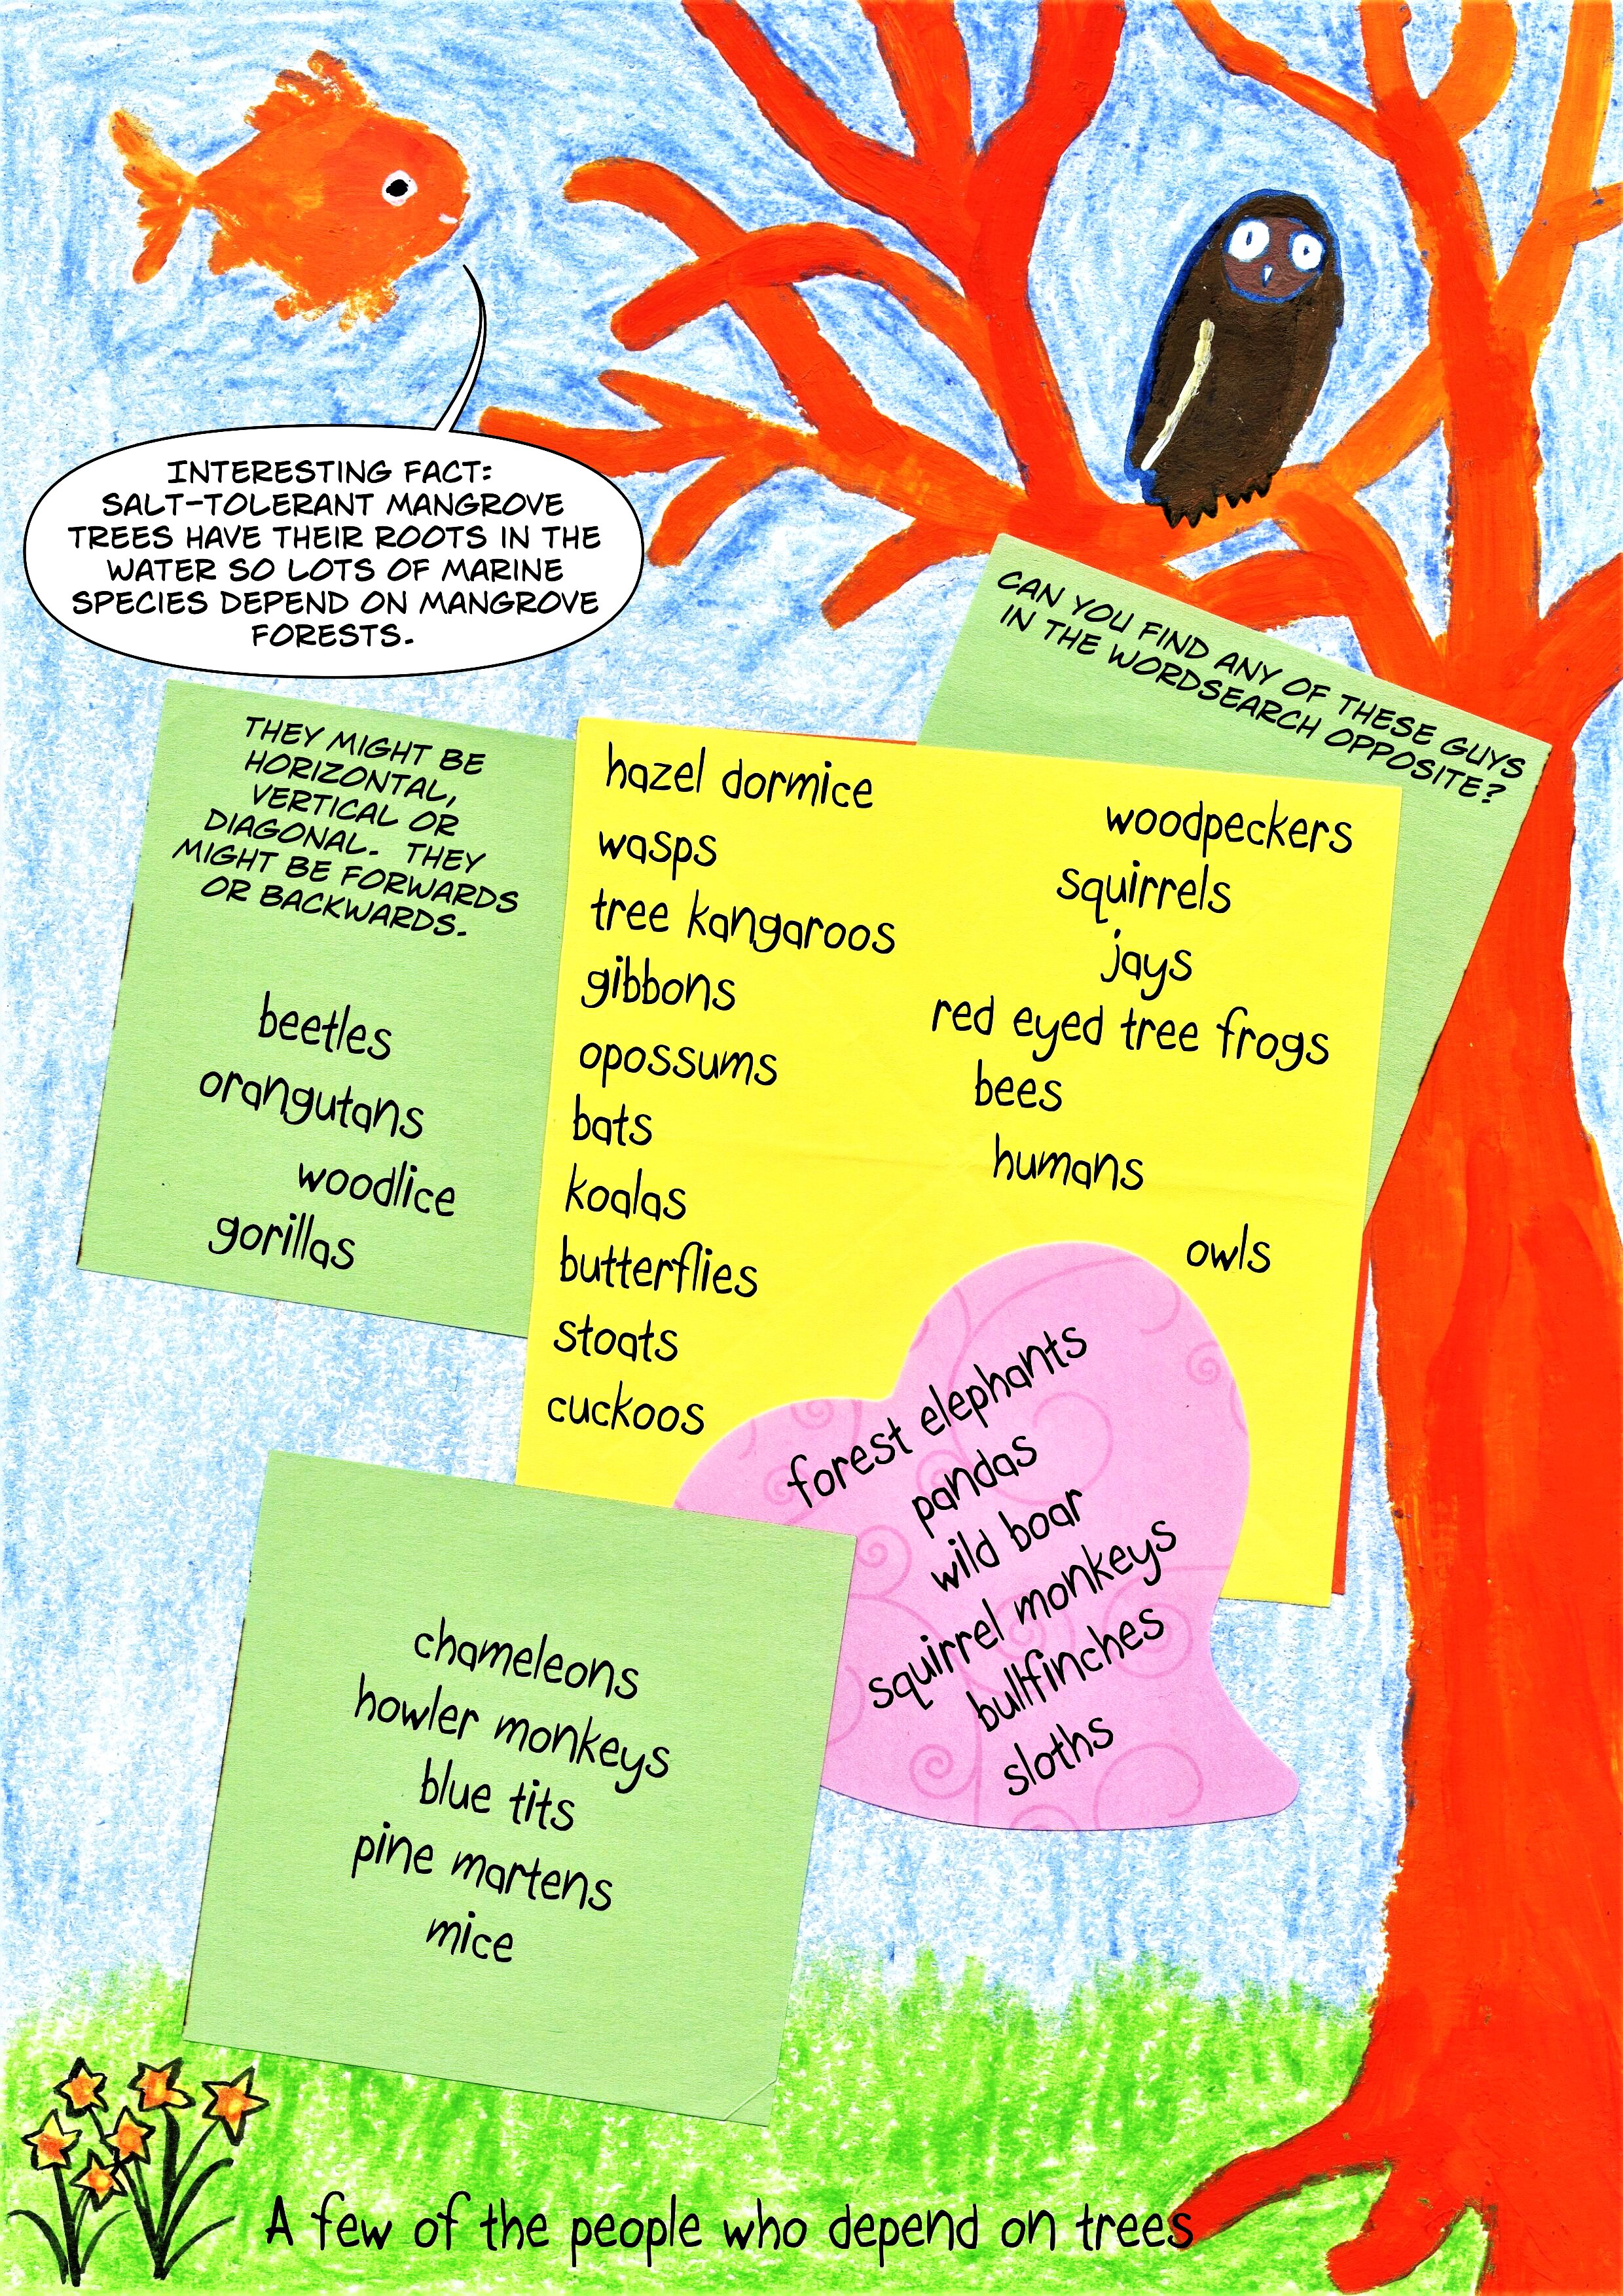 INTERESTING FACT:
SALT-TOLERANT MANGROVE
TREES HAVE THEIR ROOTS IN THE
WATER SO LOTS OF MARINE
SPECIES DEPEND ON MANGROVE
FORESTS.
CAN YOU FIND ANY OF THESE GUYS
IN THE WORDSEARCH OPPOSITE?
THEY MIGHT BE
HORIZONTAL,
VERTICAL OR
DIAGONAL. THEY
MIGHT BE FORWARDS
OR BACKWARDS.
beetles
orangutans
woodlice
gorillas
hazel dormice
wasps
tree kangaroos
gibbons
opossums
bats
koalas
butterflies
stoats
cuckoos
woodpeckers
squirrels
jays
red eyed tree frogs
bees
humans
owls
forest elephants
pandas
wild boar
squirrel monkeys
bullfinches
sloths
chameleons
howler monkeys
blue tits
pine martens
mice
A few of the people who depend on trees